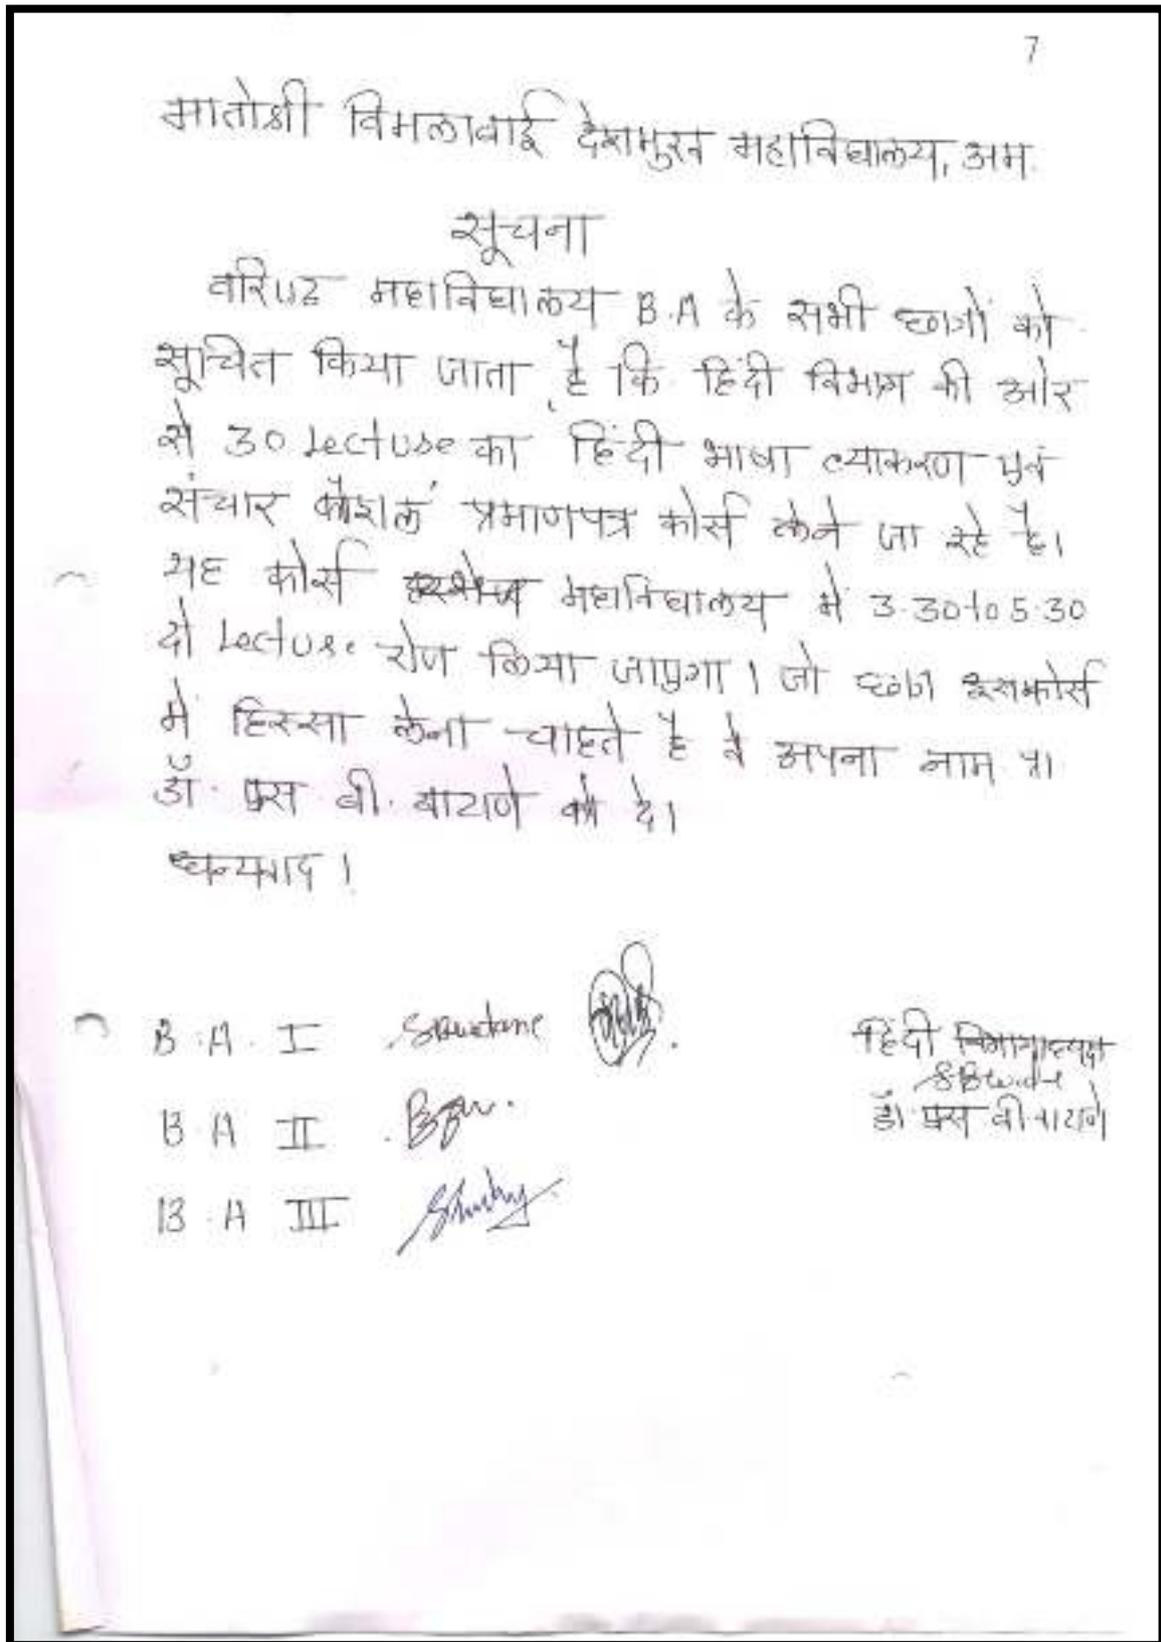 7
मातोश्री विमलाबाई देशमुख महाविद्यालय, अम.
सूचना
वरिष्ठ महाविद्यालय B.A के सभी छात्रों को
सूचित किया जाता है कि हिंदी विभाग की ओर
से 30 Lecture का हिंदी भाषा व्याकरण एवं
संचार कौशल प्रमाणपत्र कोर्स लेने जा रहे है।
यह कोर्स महाविद्यालय में 3.30 to 5.30
दो Lecture रोज लिया जाएगा। जो छात्र इस कोर्स
में हिस्सा लेना चाहते है वे अपना नाम प्रा
डॉ. एस. बी. वाटाणे को दे।
धन्यवाद।
B.A. I
हिंदी विभागाध्यक्ष
B.A II
डॉ. एस बी. वाटाणे
B.A III